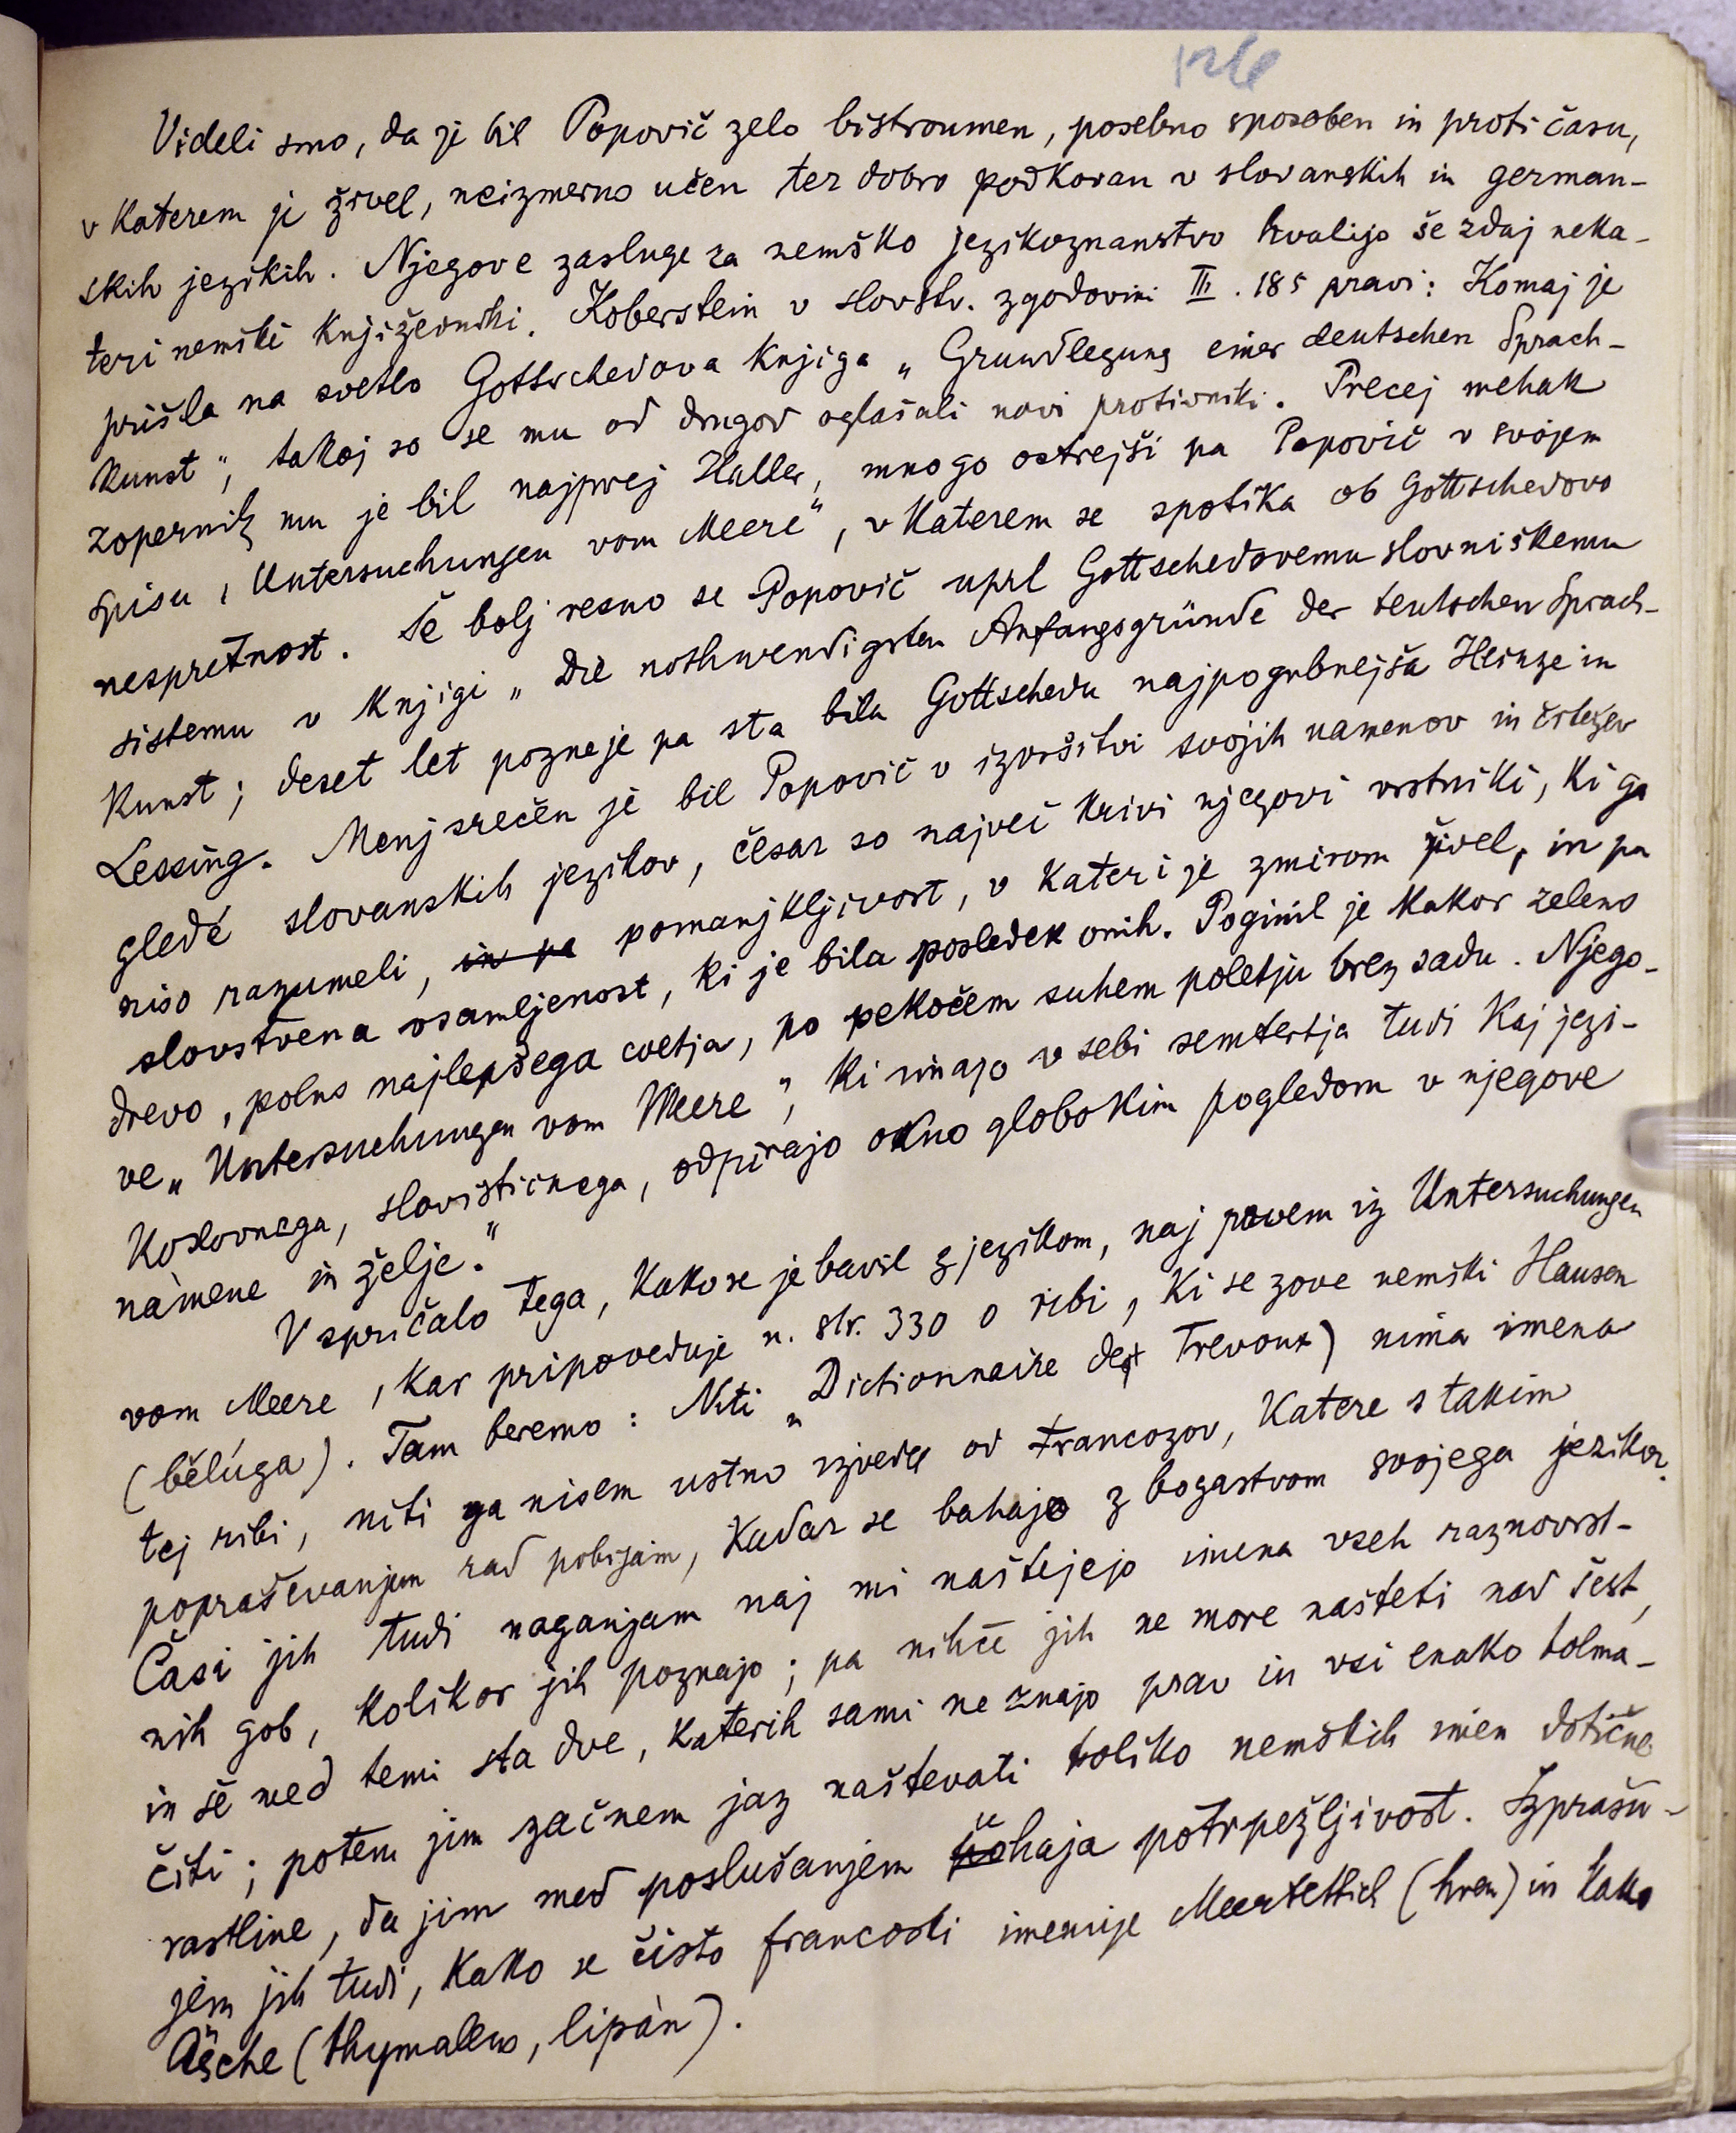 126
Videli smo, da je bil Popovič zelo bistroumen, posebno sposoben in proti času,
v katerem je živel, neizmerno učen ter dobro podkovan v slovanskih in german-
skih jezikih. Njegove zasluge za nemško jezikoznanstvo hvalijo še zdaj neka-
teri nemški književniki. Koberstein v slovstv. zgodovini III. 185 pravi: Komaj je
prišla na svetlo Gottschedova knjiga „Grundlegung einer deutschen Sprach-
kunst“, takoj so se mu od drugod oglašali novi protivniki. Precej mehak
zopernik mu je bil najprej Haller, mnogo ostrejši pa Popovič v svojem
spisu, Untersuchungen vom Meere“, v katerem se spotika ob Gottschedovo
nespretnost. Še bolj resno se Popovič uprl Gottschedovemu slovniškemu
sistemu v knjigi „Die nothwendigsten Anfangsgründe der teutschen Sprach-
kunst; deset let pozneje pa sta bila Gottschedu najpogubnejša Heinze in
Lessing. Menj srečen je bil Popovič v izvršitvi svojih namenov in črtežev
gledé slovanskih jezikov, česar so največ krivi njegovi vrstniki, ki ga
niso razumeli, in pa pomanjkljivost, v kateri je zmirom živel, in pa
slovstvena osamljenost, ki je bila posledek onih. Poginil je kakor zeleno
drevo, polno najlepšega cvetja, po pekočem suhem poletju brez sadu. Njego-
ve „Untersuchungen vom Meere“, ki imajo v sebi semtertja tudi kaj jezi-
koslovnega, slovističnega, odpirajo okno globokim pogledom v njegove
námene in želje.“
V spričalo tega, kako se je bavil z jezikom, naj povem iz Untersuchungen
vom Meere, kar pripoveduje n. str. 330 o ribi, ki se zove nemški Hausen
(bělúga). Tam beremo: Niti „Dictionnaire det Trevoux) nima imena
tej ribi, niti ga nisem ustno izvedel od Francozov, katere s takim
popraševanjem rad pobijam, kadar se bahajo z bogastvom svojega jezika.
Časi jih tudi naganjam naj mi naštejejo imena vseh raznovrst-
nih gob, kolikor jih poznajo; pa nihče jih ne more našteti nad šest,
in še med temi sta dve, katerih sami ne znajo prav in vsi enako tolma-
čiti; potem jim začnem jaz naštevati toliko nemških imen dotične
rastline, da jim med poslušanjem uhaja potrpežljivost. Izprašu-
jem jih tudi, kako se čisto francoski imenuje Meerrettich (hren) in kako
Äsche (thymallus, lipàn).